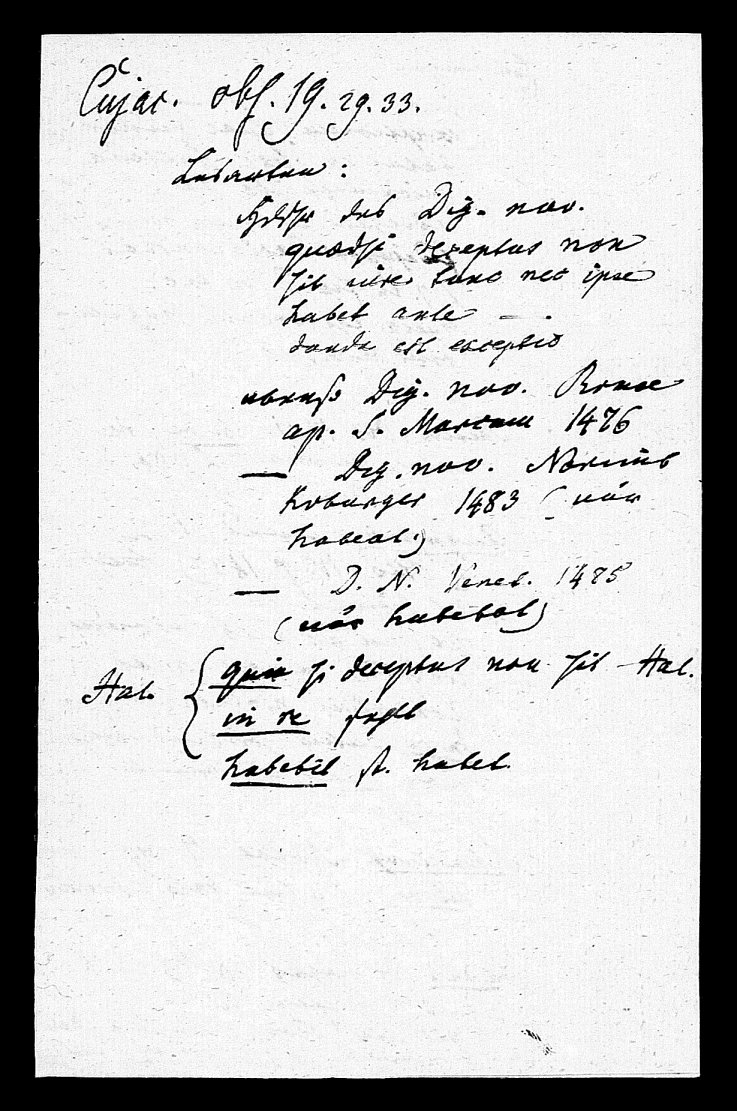 Cujac. obs. 19. 29. 33.
Lesarten:
Hdschr des Dig. nov.
quodsi deceptus non
sit iure tunc nec ipse
habet ante — .
danda est exceptio
ebenso Dig. nov. Romae
ap. S. Marcum 1476
— Dig. nov. Norimb
Koburger 1483 (nur
habeat.)
— D. N. Venet. 1485
(nur habebat)
Hal. quia si deceptus non sit Hal.
in re fehlt
habebit st. habet.